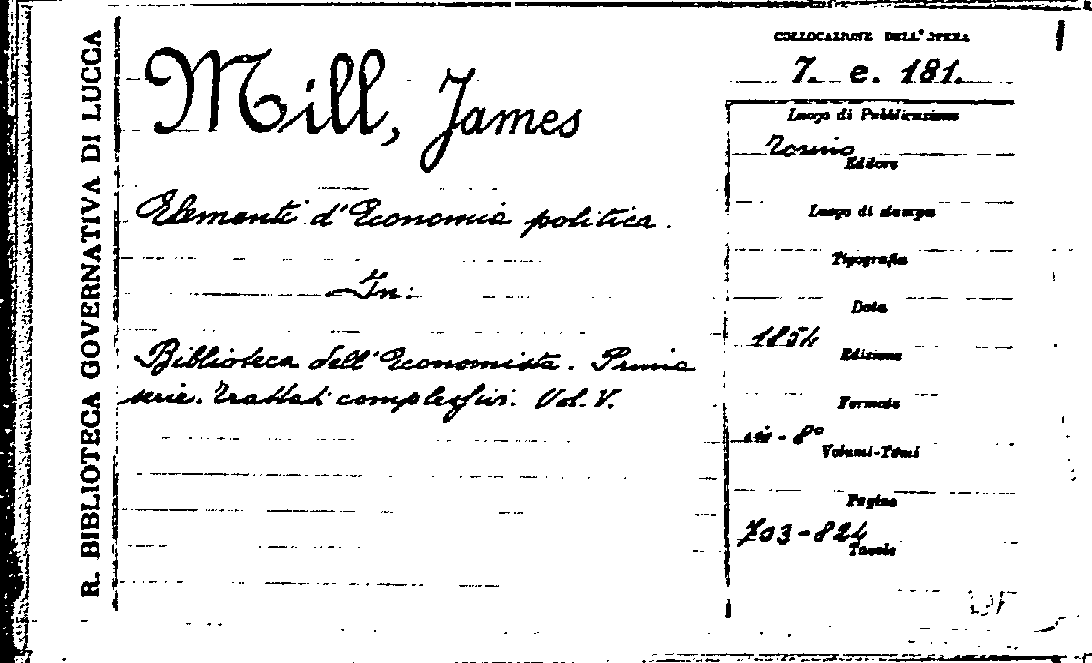 R. BIBLIOTECA GOVERNATIVA DI LUCCA
Mill, James
Elementi d'Economia politica.
In:
Biblioteca dell'Economista. Prima
serie. Trattati complessivi. Vol. V.
COLLOCAZIONE DELL'OPERA
7. e. 181.
Luogo di Pubblicazione
Torino
Editore
Luogo di stampa
Tipografia
Data
1854
Edizione
Formato
in-8°
Volumi-Tomi
Pagine
703-824
Tavole